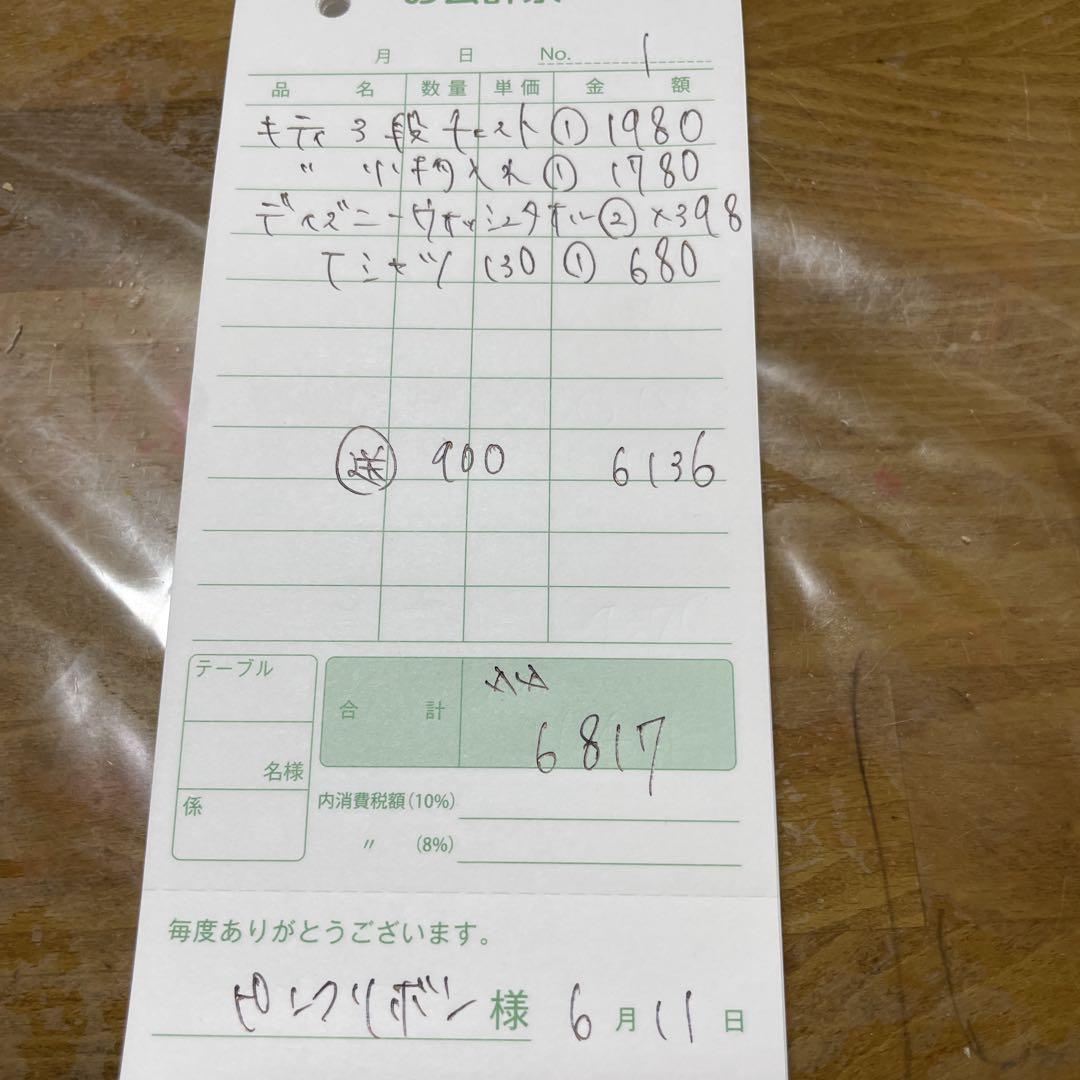 お会計票
月 日 No. 1
品 名 数量 単価 金 額
キティ 3段チェスト ① 1980
〃 小物入れ ① 1780
ディズニーウォッシュタオル ② ×398
Tシャツ 130 ① 680
900 6136
テーブル
名様
係
合 計
6817
内消費税額(10%)
〃 (8%)
毎度ありがとうございます。
ピンクリボン 様 6月11日